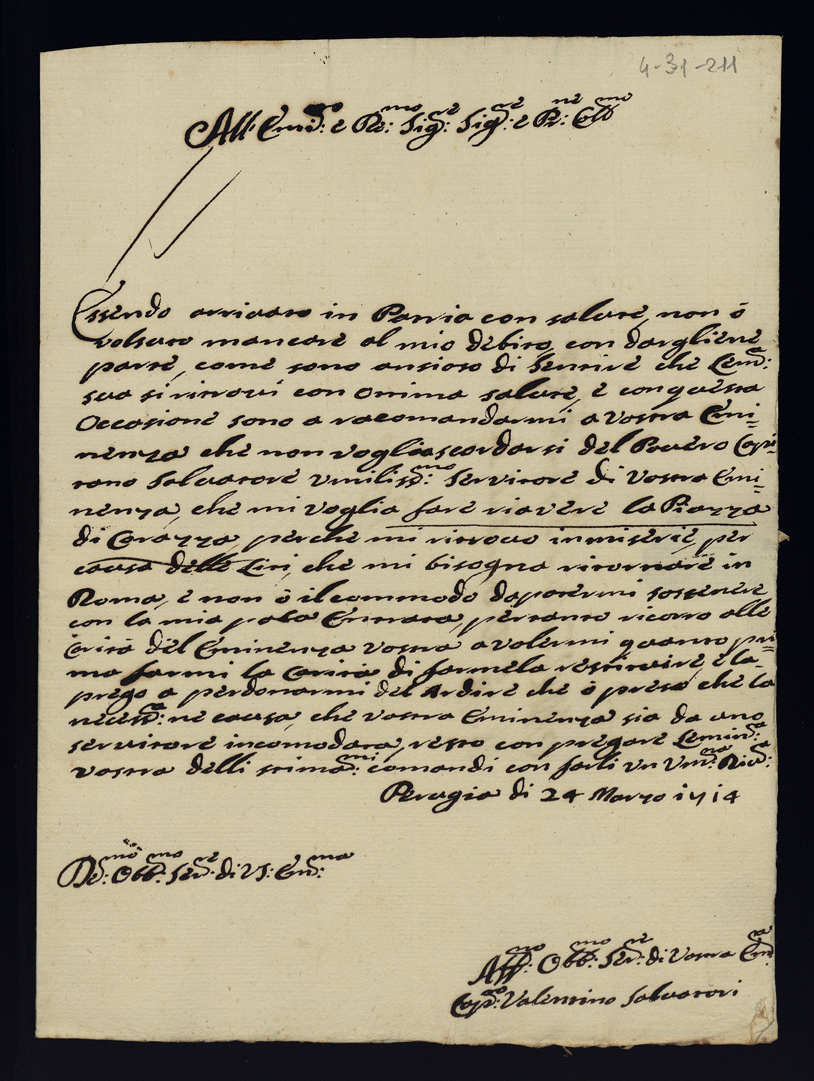 4-31-211
All' Emi:mo e Re:mo Sig:re Sig:re e Pr:ne Coll:mo
Essendo arrivato in Patria con salute, non ò
volsuto mancare al mio debito, con dargliene
parte, come sono ansioso di sentire che Lem:a
sua si ritrovi con ottima salute, e con questa
Occasione sono a racomandarmi a Vostra Emi=
nenza che non voglia scordarsi del Povero Capi=
tano Salvatore Umiliss:mo Servitore di Vostra Emi=
nenza, che mi voglia fare riavere la Piazza
di Corazza, perche mi ritrovo in miserie, per
causa delle Liti, che mi bisogna ritornare in
Roma, e non ò il commodo da potermi sostenere
con la mia poca Entrata, pertanto ricorro alla
Carità del Eminenza Vostra a volermi quanto pri=
ma farmi la Carità di farmela restituire, e la
prego a perdonarmi del Ardire che ò preso che la
necess:a ne causa, che Vostra Eminenza sia da uno
servitore incomodata, resto con pregare Lemin:a
Vostra delli stima:mi comandi con farli un Um:ma Riv:a
Perugia di 24 Marzo 1714
De:mo Obb:mo Ser:re di V: Em:ma
Aff:mo Obb:mo Ser:re di Vostra Em:a
Cap:no Valentino Salvatori